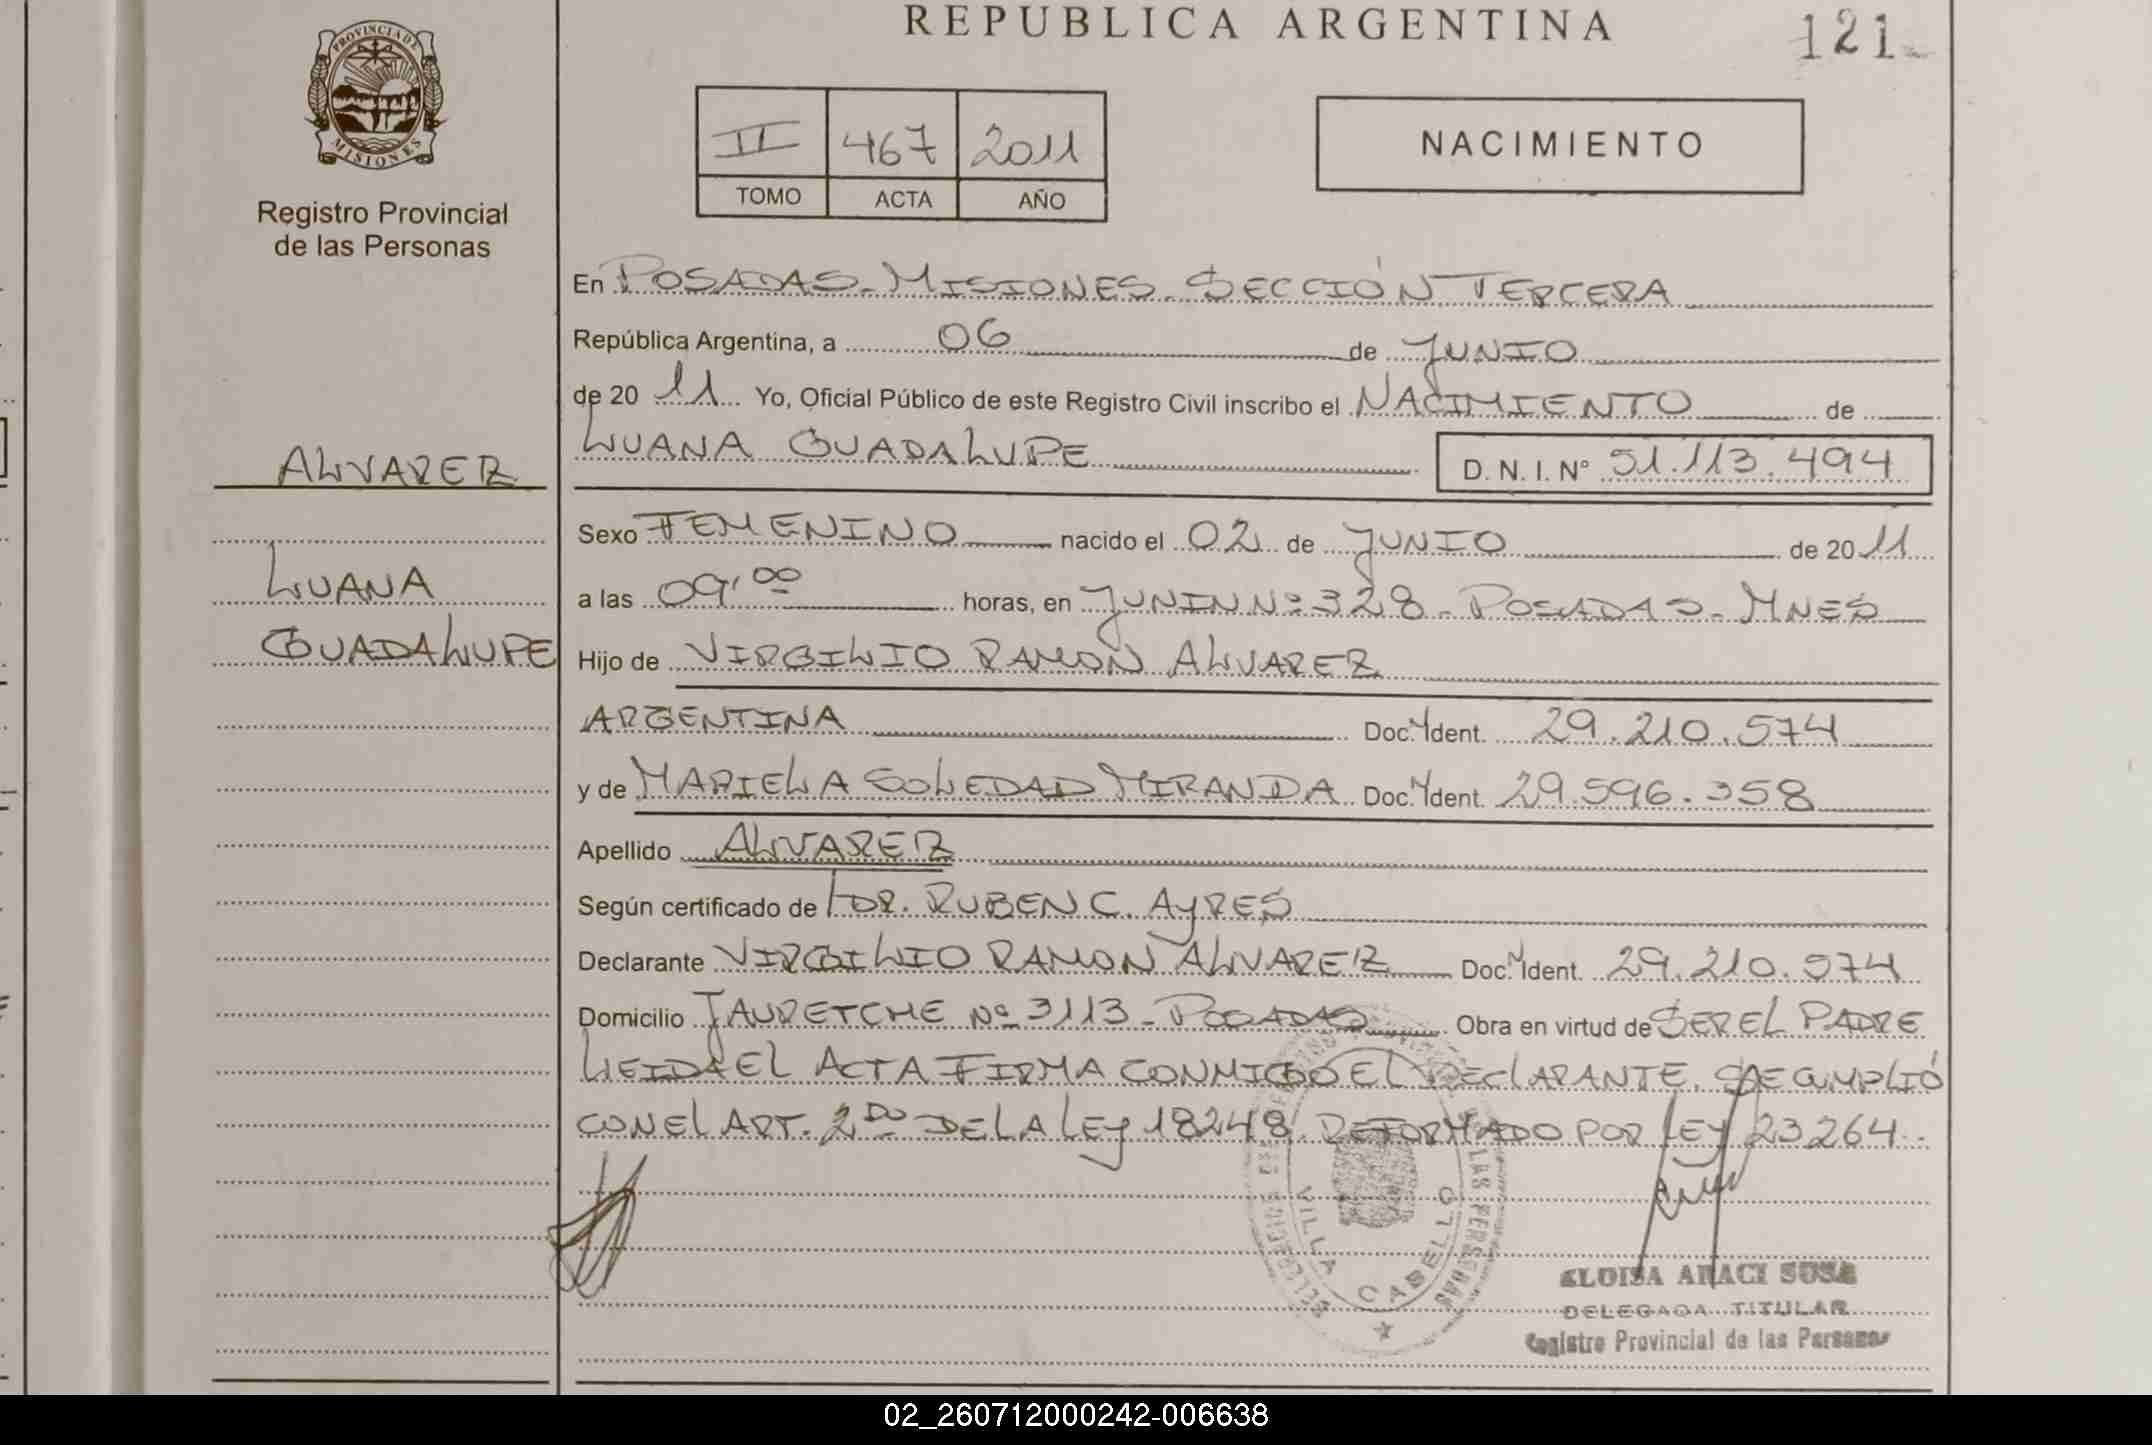 REPUBLICA ARGENTINA
121
PROVINCIA DE
MISIONES
Registro Provincial
de las Personas
II 467 2011
TOMO ACTA AÑO
NACIMIENTO
En POSADAS - MISIONES - SECCIÓN TERCERA
República Argentina, a 06 de JUNIO
de 20 11 Yo, Oficial Público de este Registro Civil inscribo el NACIMIENTO de
LUANA GUADALUPE D. N. I. N° 51.113.494
ALVAREZ
LUANA
GUADALUPE
Sexo FEMENINO nacido el 02 de JUNIO de 20 11
a las 09,00 horas, en JUNIN Nº 328 - POSADAS - MNES
Hijo de VIRGILIO RAMON ALVAREZ
ARGENTINA Doc. Ident. 29.210.574
y de MARIELA SOLEDAD MIRANDA Doc. Ident. 29.596.358
Apellido ALVAREZ
Según certificado de DR. RUBEN C. AYRES
Declarante VIRGILIO RAMON ALVAREZ Doc. Ident. 29.210.574
Domicilio JAURETCHE Nº 3113 - POSADAS Obra en virtud de SER EL PADRE
LEIDA EL ACTA FIRMA CONMIGO EL DECLARANTE. SE CUMPLIÓ
CON EL ART. 2DO DE LA LEY 18248 REFORMADO POR LEY 23264.
VILLA CABELLO
ELOISA ARACI SOSA
DELEGADA TITULAR
Registro Provincial de las Personas
02_260712000242-006638